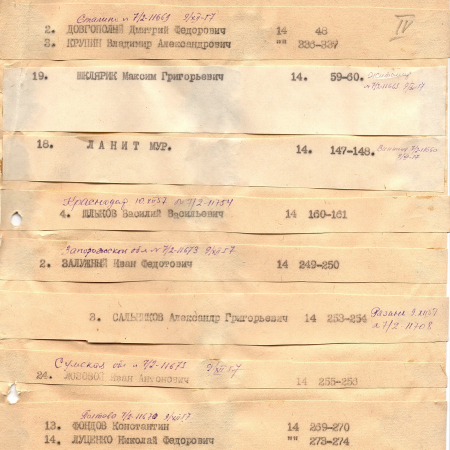 Сталино № 7/2-11669 9/XII-57
2. ДОВГОПОЛЫЙ Дмитрий Федорович 14 48
3. КРУПИН Владимир Александрович "" 336-337
IV
19. ШКЛЯРИК Максим Григорьевич 14. 59-60.
18. ЛАНИТ МУР. 14. 147-148.
Краснодар 10.XII57 № 7/2-11754
4. ШЛЫКОВ Василий Васильевич 14 160-161
Запорожская обл № 7/2-11673 9/XII-57
2. ЗАЛУЖНЫЙ Иван Федотович 14 249-250
3. САЛЬНИКОВ Александр Григорьевич 14 253-254
Рязань 9.XII57
№ 7/2-11708
Сумская обл № 7/2-11675 9/XII-57
24. Иван Антонович 14
Полтава 7/2-11670 9/XII57
13. ФОНДОВ Константин 14 269-270
14. ЛУЦЕНКО Николай Федорович "" 273-274